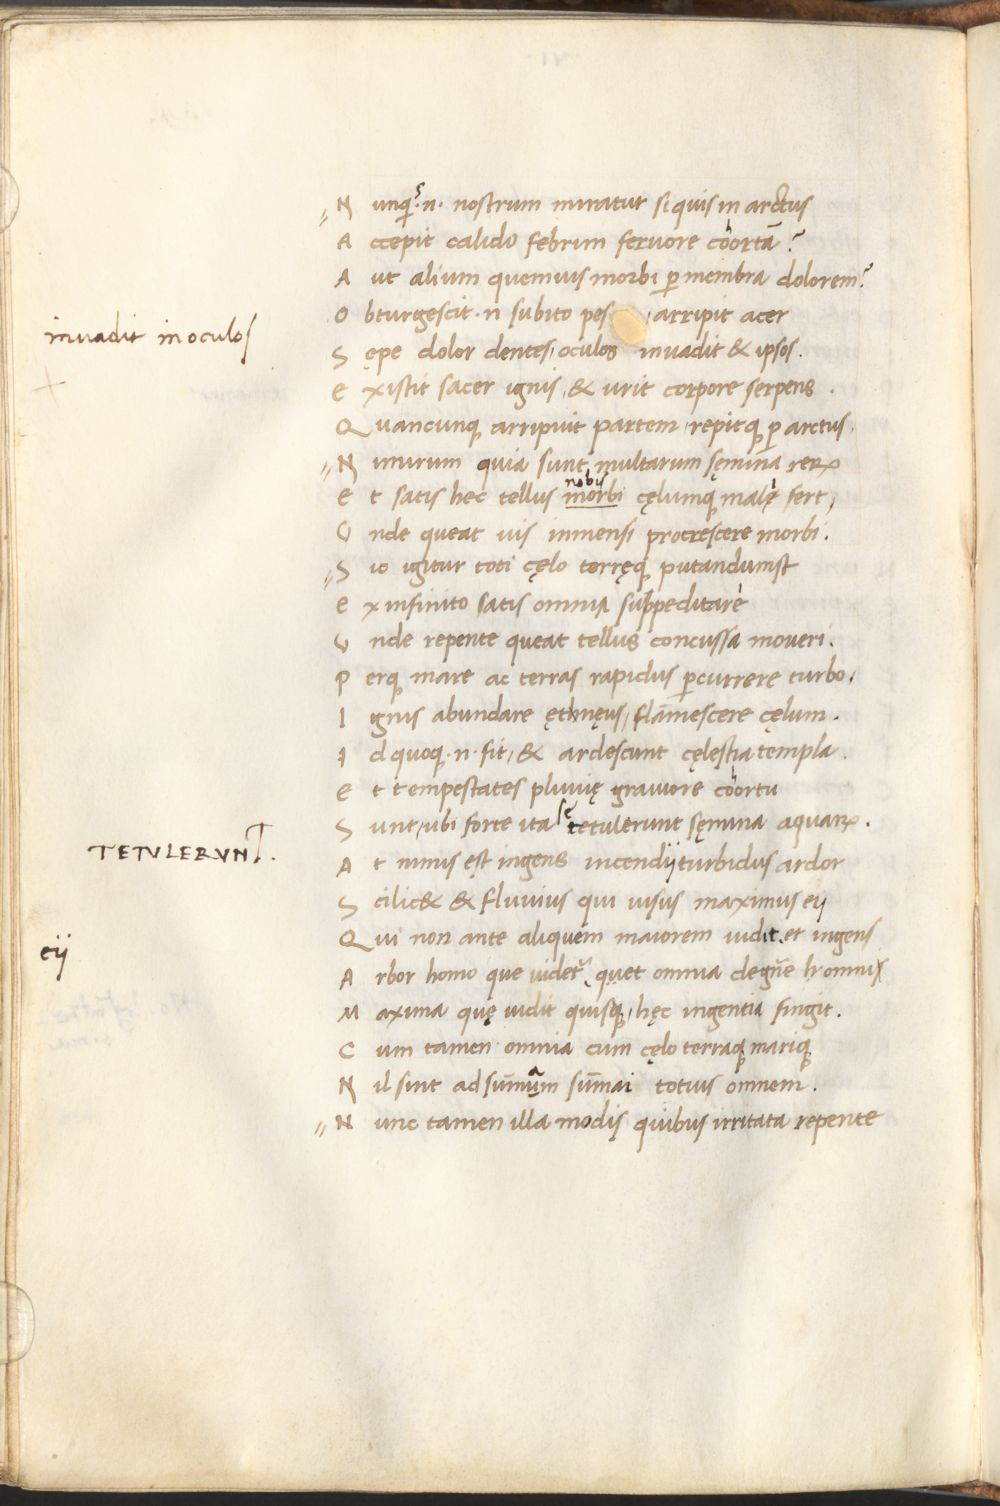 N unqͥs ·n· nostrum miratur si quis in arctus
A ccepit calido febrim feruore coortā?
A ut alium quemuis morbi ꝑ membra dolorem?
O bturgescit ·n subito pes, arripit acer
invadit in oculos
S ępe dolor dentes, oculos inuadit & ipsos.
E xistit sacer ignis, & urit corpore serpens.
Q uancunqꝫ arripuit partem, repitqꝫ ꝑ arctus,
N imirum quia sunt multarum sęmina reꝝ
nobis
E t satis hec tellus morbi cęlumqꝫ male fert,
U nde queat uis inmensi procrescere morbi.
S ic igitur toti cęlo terręqꝫ putandumst
E x infinito satis omnia suppeditare
U nde repente queat tellus concussa moueri.
P erqꝫ mare ac terras rapidus ꝑcurrere turbo,
I gnis abundare ętnęus, flāmescere cęlum.
I d quoqꝫ ·n· fit, & ardescunt cęlestia templa.
E t tempestates pluuię grauiore coortu
S unt, ubi forte ita sę tetulerunt sęmina aquaꝝ.
TETVLERVNT.
A t nimis est ingens incendii turbidus ardor
S cilic& & fluuius qui uisus maximus eij
Q ui non ante aliquem maiorem uidit, et ingens
eij
A rbor homo que uidetͬ, quet omnia de gn̄e hr omni
M axima quę uidit quisqꝫ, hęc ingentia fingit.
C um tamen omnia cum cęlo terraqꝫ mariqꝫ
N il sint ad sūmam sūmai totius omnem.
N unc tamen illa modis quibus irritata repente